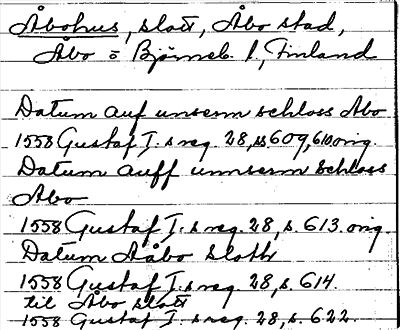 Åbohus, slott, Åbo stad,
Åbo o Björneb. l, Finland
Datum auf unserm schloss Abo
1558 Gustaf I. s reg. 28, ss 609, 610 orig.
Datum auff unnserm Schloss
Abo
1558 Gustaf I. s reg. 28, s. 613. orig.
Datum Aåbo Sloth
1558 Gustaf I. s reg. 28, s. 614.
til Åbo slott
1558 Gustaf I. s reg. 28, s. 622.